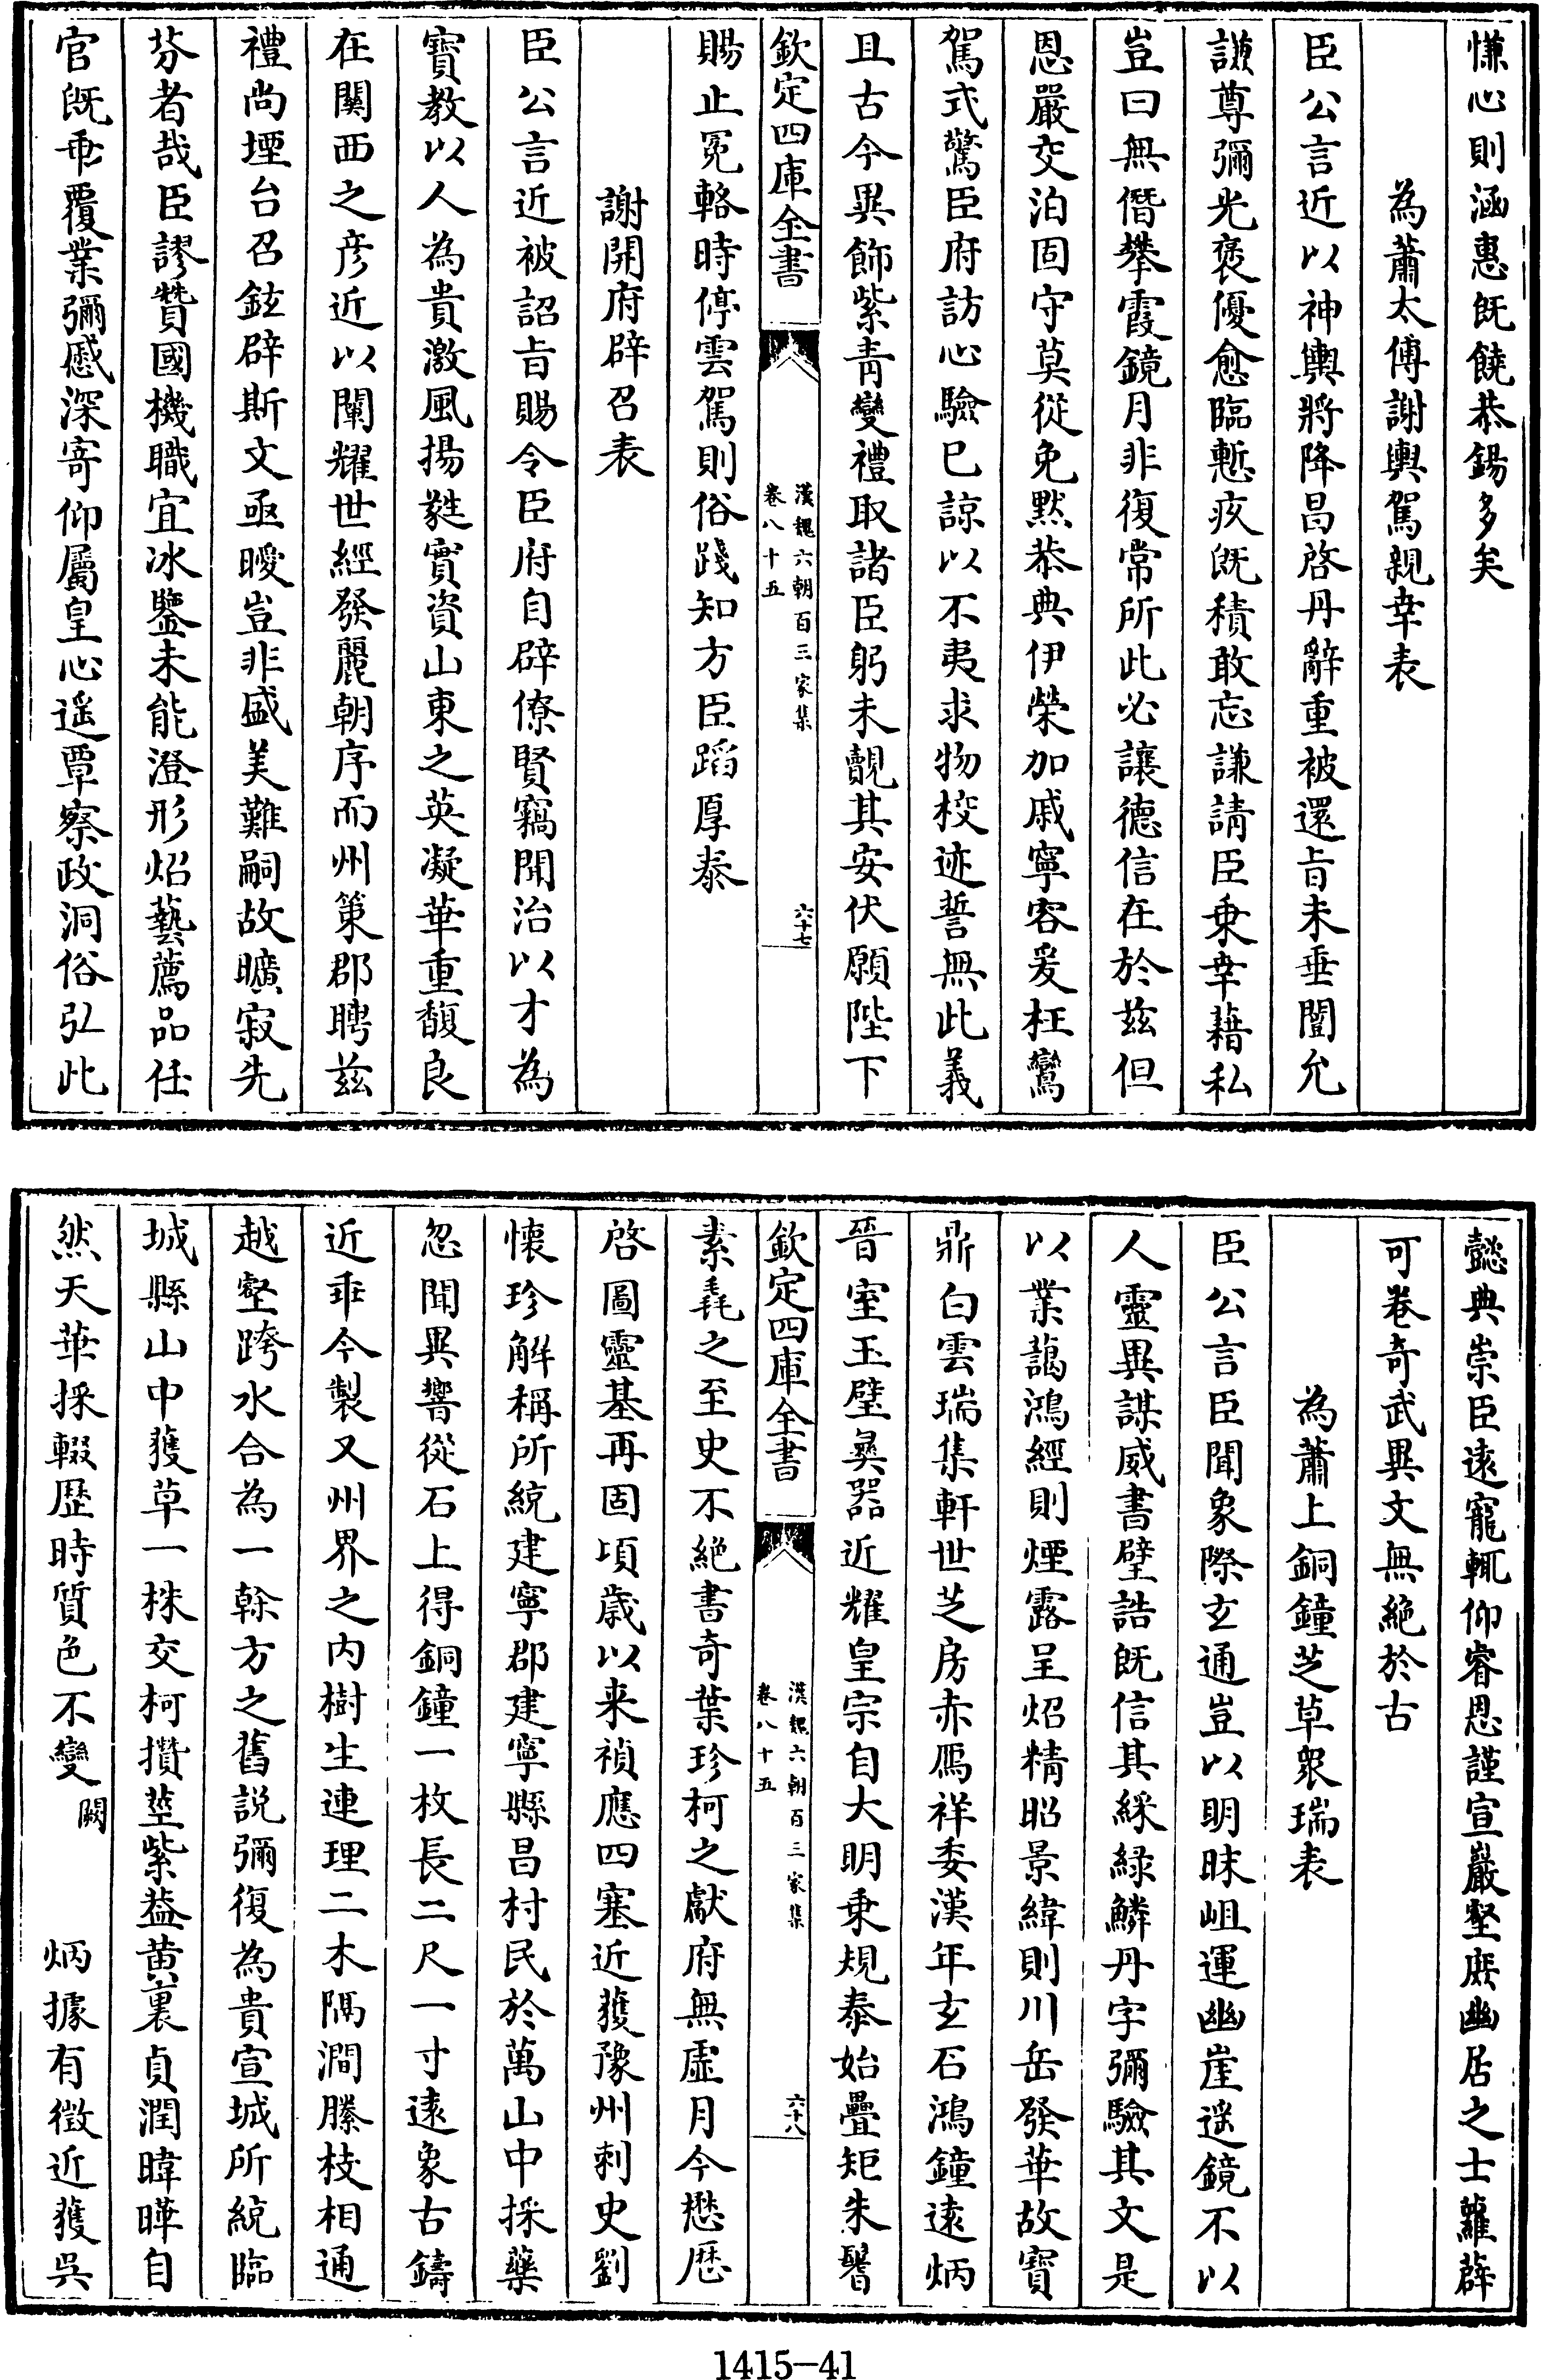 慊心則涵惠旣饒恭錫多矣
為蕭太傅謝輿駕親幸表
臣公言近以神輿將降昌啓丹辭重被還㫖未垂閶允
謙尊彌光褒優愈臨慙疚旣積敢忘謙請臣乗幸藉私
豈曰無僭攀霞鏡月非復常所此必讓德信在於兹但
恩嚴交泊固守莫從免黙恭典伊榮加戚寧容爰枉鸞
駕式驚臣府訪心驗已諒以不夷求物校迹誓無此義
且古今異飾紫青變禮取諸臣躬未覩其安伏願陛下
欽定四庫全書
漢魏六朝百三家集
卷八十五
六十七
賜止冕輅時停雲駕則俗踐知方臣蹈厚泰
謝開府辟召表
臣公言近被詔㫖賜令臣府自辟僚賢竊聞治以才為
寳教以人為貴激風揚㲰實資山東之英凝華重馥良
在關西之彦近以闡耀世經發麗朝序而州策郡聘兹
禮尚堙台召鉉辟斯文亟曖豈非盛美難嗣故曠寂先
芬者哉臣謬贊國機職宜冰鑒未能澄形炤藝薦品任
官旣乖覆業彌慼深寄仰屬皇心遥覃察政洞俗弘此
懿典崇臣逺寵輒仰睿恩謹宣巖壑庶幽居之士蘿薜
可巻奇武異文無絶於古
為蕭上銅鐘芝草衆瑞表
臣公言臣聞象際玄通豈以明昧岨運幽崖遥鏡不以
人靈異謀威書壁誥旣信其綵緑鱗丹字彌驗其文是
以業藹鴻經則煙露呈炤精昭景緯則川岳發華故寳
鼎白雲瑞集軒世芝房赤鴈祥委漢年玄石鴻鐘逺炳
晉室玉璧彞器近耀皇宗自大明乗規泰始疊矩朱鬐
欽定四庫全書
漢魏六朝百三家集
卷八十五
六十八
素毳之至史不絶書奇葉珍柯之獻府無虚月今懋厯
啓圖靈基再固頃歳以来禎應四塞近獲豫州刺史劉
懐珍解稱所統建寧郡建寧縣昌村民於萬山中採藥
忽聞異響從石上得銅鐘一枚長二尺一寸逺象古鑄
近乖今製又州界之内樹生連理二木隔澗㯢枝相通
越壑跨水合為一榦方之舊説彌復為貴宣城所統臨
城縣山中獲草一株交柯攅莖紫葢黄裏貞潤暐曄自
然天華採輟歴時質色不變闕 炳據有徴近獲呉
1415-41